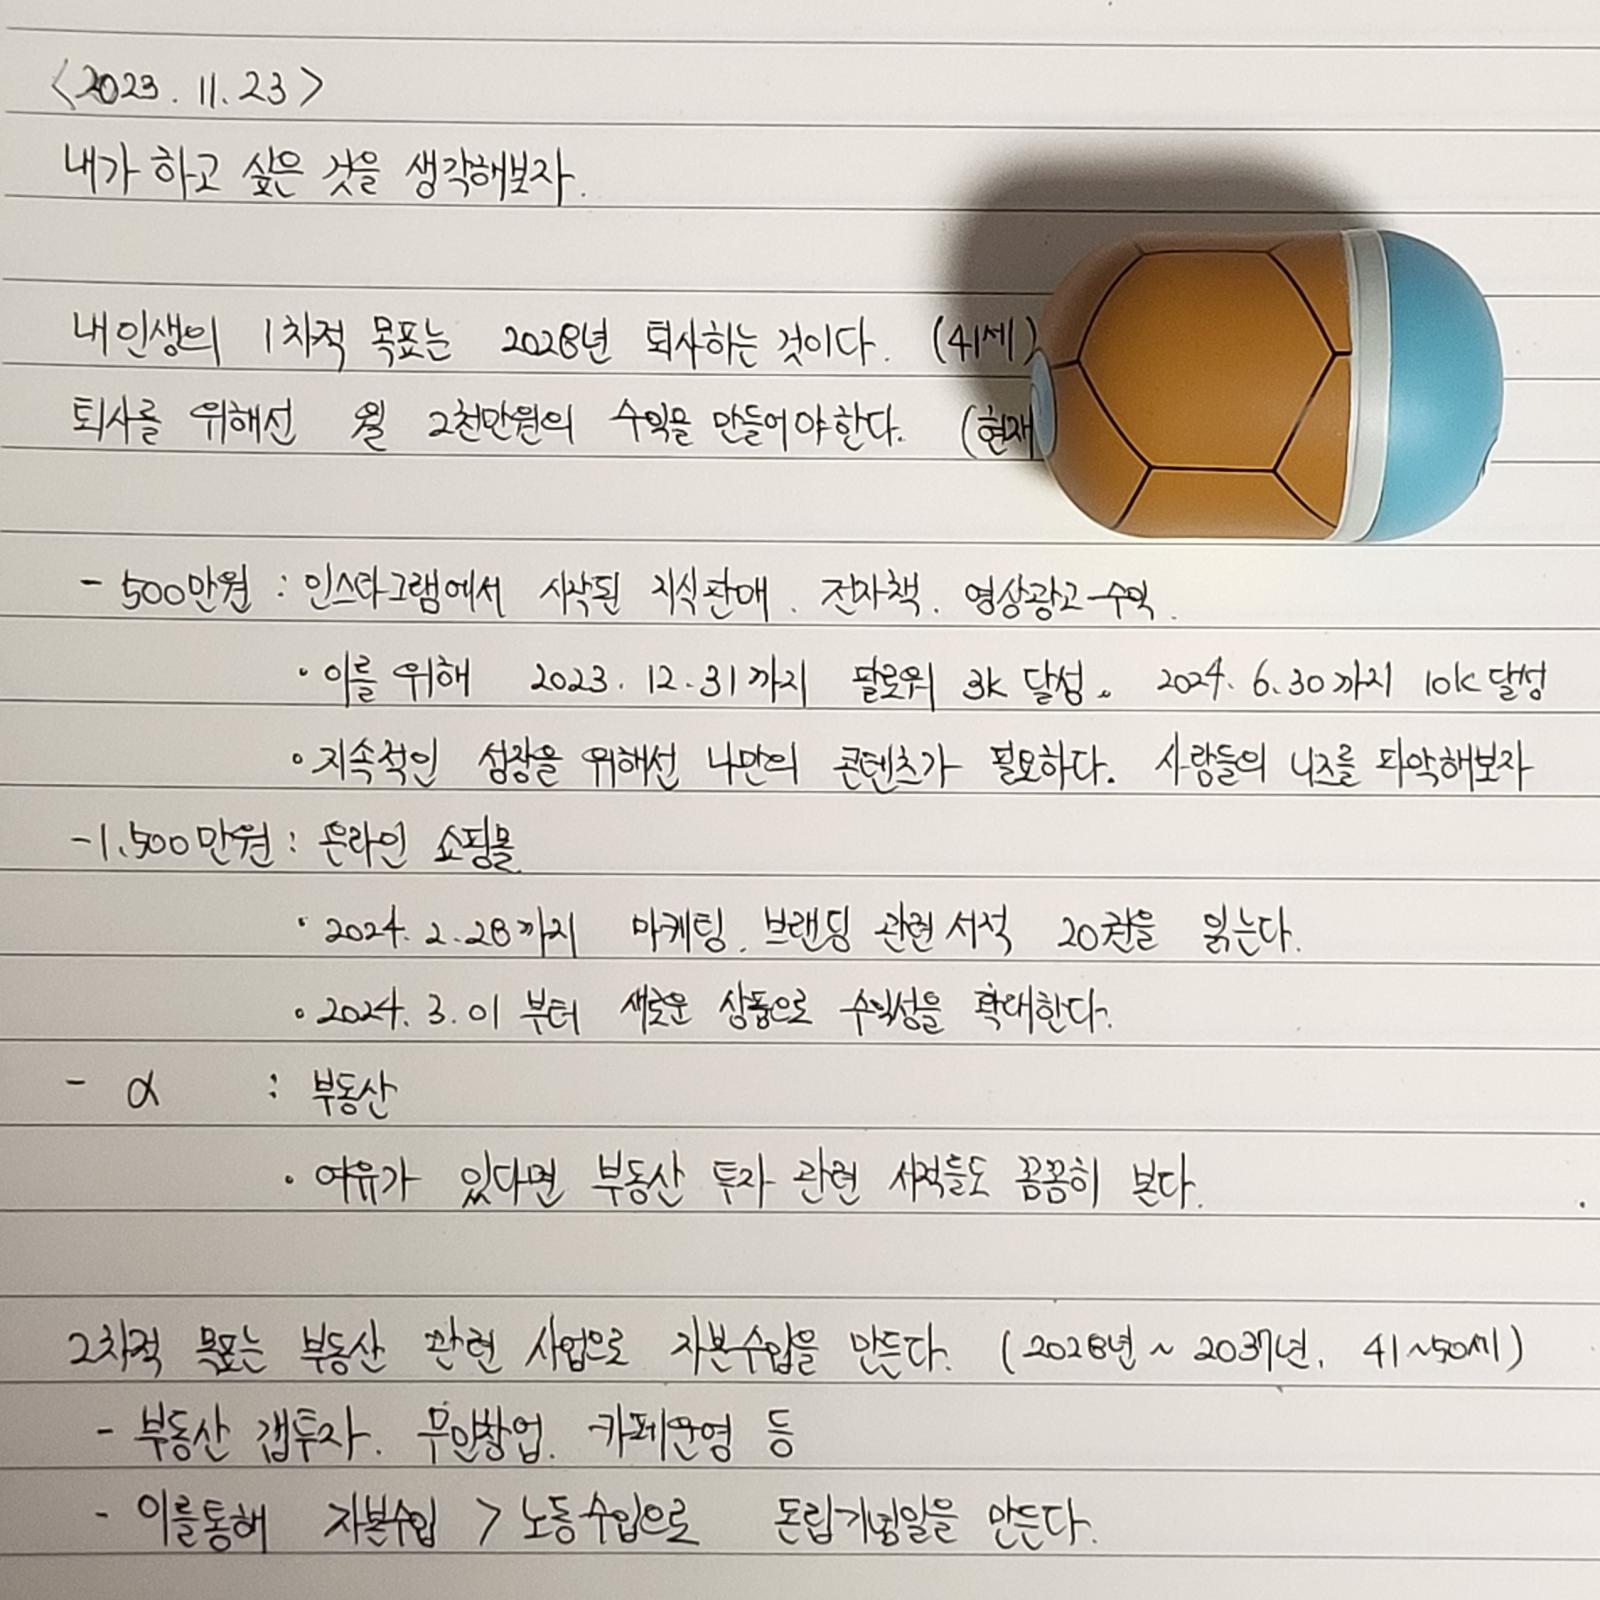 <2023. 11. 23>
내가 하고 싶은 것을 생각해보자.
내 인생의 1차적 목표는 2028년 퇴사하는 것이다. (41세)
퇴사를 위해선 월 2천만원의 수익을 만들어야한다. (현재
- 500만원 : 인스타그램에서 시작된 지식판매. 전자책. 영상광고수익.
• 이를 위해 2023. 12. 31까지 팔로워 3k 달성. 2024. 6. 30까지 10k 달성
• 지속적인 성장을 위해선 나만의 콘텐츠가 필요하다. 사람들의 니즈를 파악해보자
- 1,500만원 : 온라인 쇼핑몰
• 2024. 2. 28까지 마케팅. 브랜딩 관련 서적 20권을 읽는다.
• 2024. 3. 01부터 새로운 상품으로 수익성을 확대한다.
- α : 부동산
• 여유가 있다면 부동산 투자 관련 서적들도 꼼꼼히 본다.
2차적 목표는 부동산 관련 사업으로 자본수입을 만든다. (2028년 ~ 2037년, 41~50세)
- 부동산 갭투자. 무인창업. 카페운영 등
- 이를통해 자본수입 > 노동수입으로 돈립기념일을 만든다.